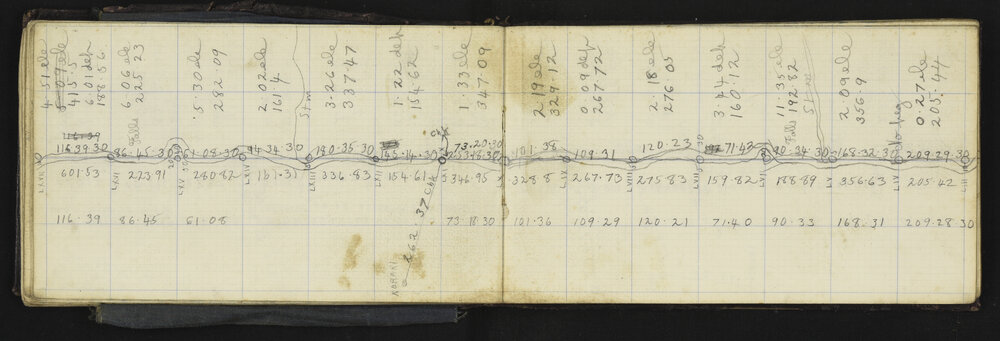 4.51 ele
5.09 ele
415.5
6.01 dep
188.56
6.06 ele
225 23
5.30 ele
282 09
2.02 ele
161.4
3.26 ele
337 47
1.22 dep
154 62
1.33 ele
347.09
2.19 ele
329.12
0.09 dep
267.72
2.18 ele
276.05
3.44 dep
160.12
11.35 ele
192.82
2.09 ele
356.9
0 27 ele
205.44
Falls
Stm
Falls
116.39.30
86.45.30
61.08.30
94.34.30
130.35.30
145.14.30
73.20.30
253.18.30
101.38
109.31
120.23
71.42
90.34.30
168.32.30
209.29.30
LXVI
LXV
LXIII
LXII
LXI
LX
LIX
LVIII
LVII
LVI
LV
LIV
LIII
601.53
223 91
280 82
161.31
336.83
154.61
346.95
328 8
267.73
275.83
159.82
188.89
356.63
205.42
116.39
86.45
61.08
73.18.30
101.36
109.29
120.21
71.40
90.33
168.31
209.28.30
862
37